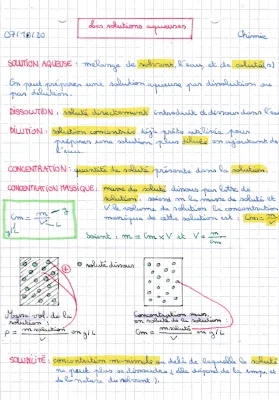 Les solutions aqueuses
07/10/20 Chimie
SOLUTION AQUEUSE : mélange de solvant l'eau, et de soluté(s)
On peut préparer une solution aqueuse par dissolution ou
par dilution.
DISSOLUTION : soluté directement introduit dans l'eau
DILUTION : solution concentrée déjà prête utilisée pour
préparer une solution plus diluée en ajoutant de
l'eau.
CONCENTRATION : quantité de soluté présente dans la solution.
CONCENTRATION MASSIQUE : masse de soluté dissous par litre de
solution. soient m la masse de soluté et
V le volume de solution la concentration
massique de cette solution est : Cm = m/V
Cm = m/V g L g/L
Soient : m = Cm × V et V = m/Cm
soluté dissous
Masse vol. de la
solution :
ρ = m solution / V en g/L
Concentration mass.
en soluté de la solution :
Cm = m soluté / V en g/L
SOLUBILITÉ : concentration maximale au delà de laquelle le soluté
ne peut plus se dissoudre (elle dépend de la temp. et
de la nature du solvant).